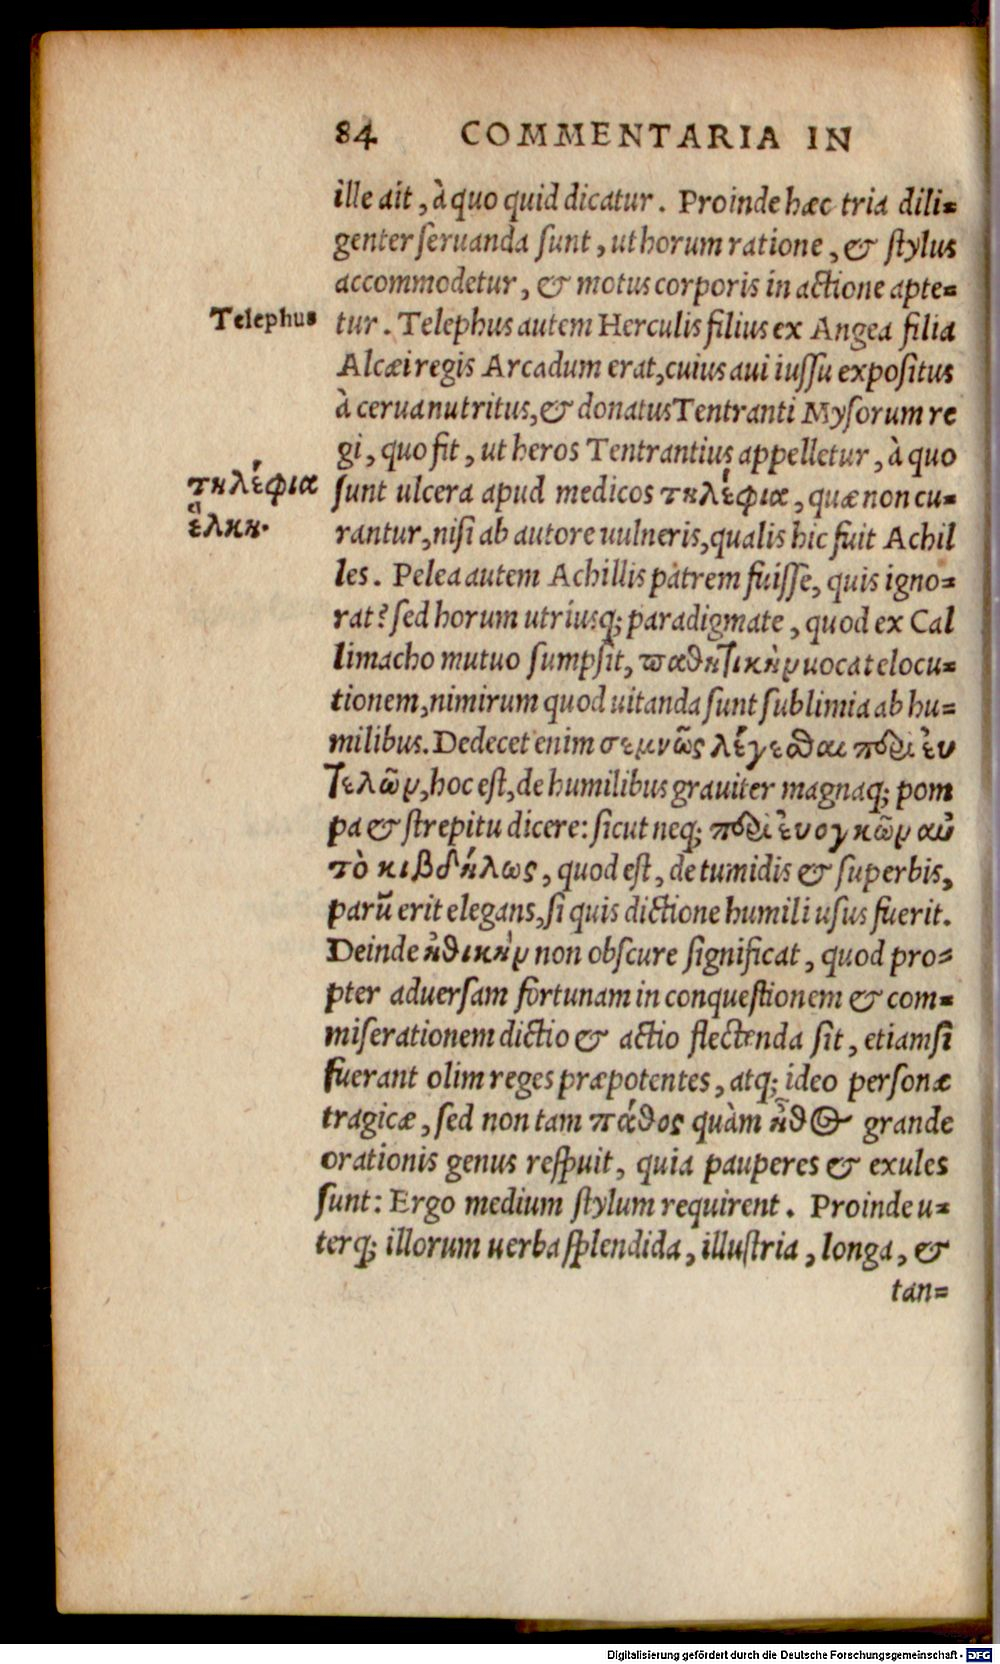 84 COMMENTARIA IN
ille ait, à quo quid dicatur. Proinde hæc tria dili=
genter seruanda sunt, ut horum ratione, & stylus
accommodetur, & motus corporis in actione apte=
Telephus
tur. Telephus autem Herculis filius ex Angea filia
Alcæi regis Arcadum erat, cuius aui iussu expositus
à cerua nutritus, & donatus Tentranti Mysorum re
gi, quo fit, ut heros Tentrantius appelletur, à quo
τηλέφια
ἕλκη.
sunt ulcera apud medicos τηλέφια, quæ non cu=
rantur, nisi ab autore uulneris, qualis hic fuit Achil
les. Pelea autem Achillis patrem fuisse, quis igno=
rat? sed horum utriusq; paradigmate, quod ex Cal
limacho mutuo sumpsit, παθητικὴν uocat elocu=
tionem, nimirum quod uitanda sunt sublimia ab hu=
milibus. Dedecet enim σεμνῶς λέγεσθαι περὶ εὐ
τελῶν, hoc est, de humilibus grauiter magnaq; pom
pa & strepitu dicere: sicut neq; περὶ εὐογκῶν αὐ
τὸ κιβδήλως, quod est, de tumidis & superbis,
parũ erit elegans, si quis dictione humili usus fuerit.
Deinde ἠθικὴν non obscure significat, quod pro=
pter aduersam fortunam in conquestionem & com=
miserationem dictio & actio flectenda sit, etiamsi
fuerant olim reges præpotentes, atq; ideo personæ
tragicæ, sed non tam πάθος quàm ἦθος grande
orationis genus respuit, quia pauperes & exules
sunt: Ergo medium stylum requirent. Proinde u=
terq; illorum uerba splendida, illustria, longa, &
tan=
Digitalisierung gefördert durch die Deutsche Forschungsgemeinschaft - DFG